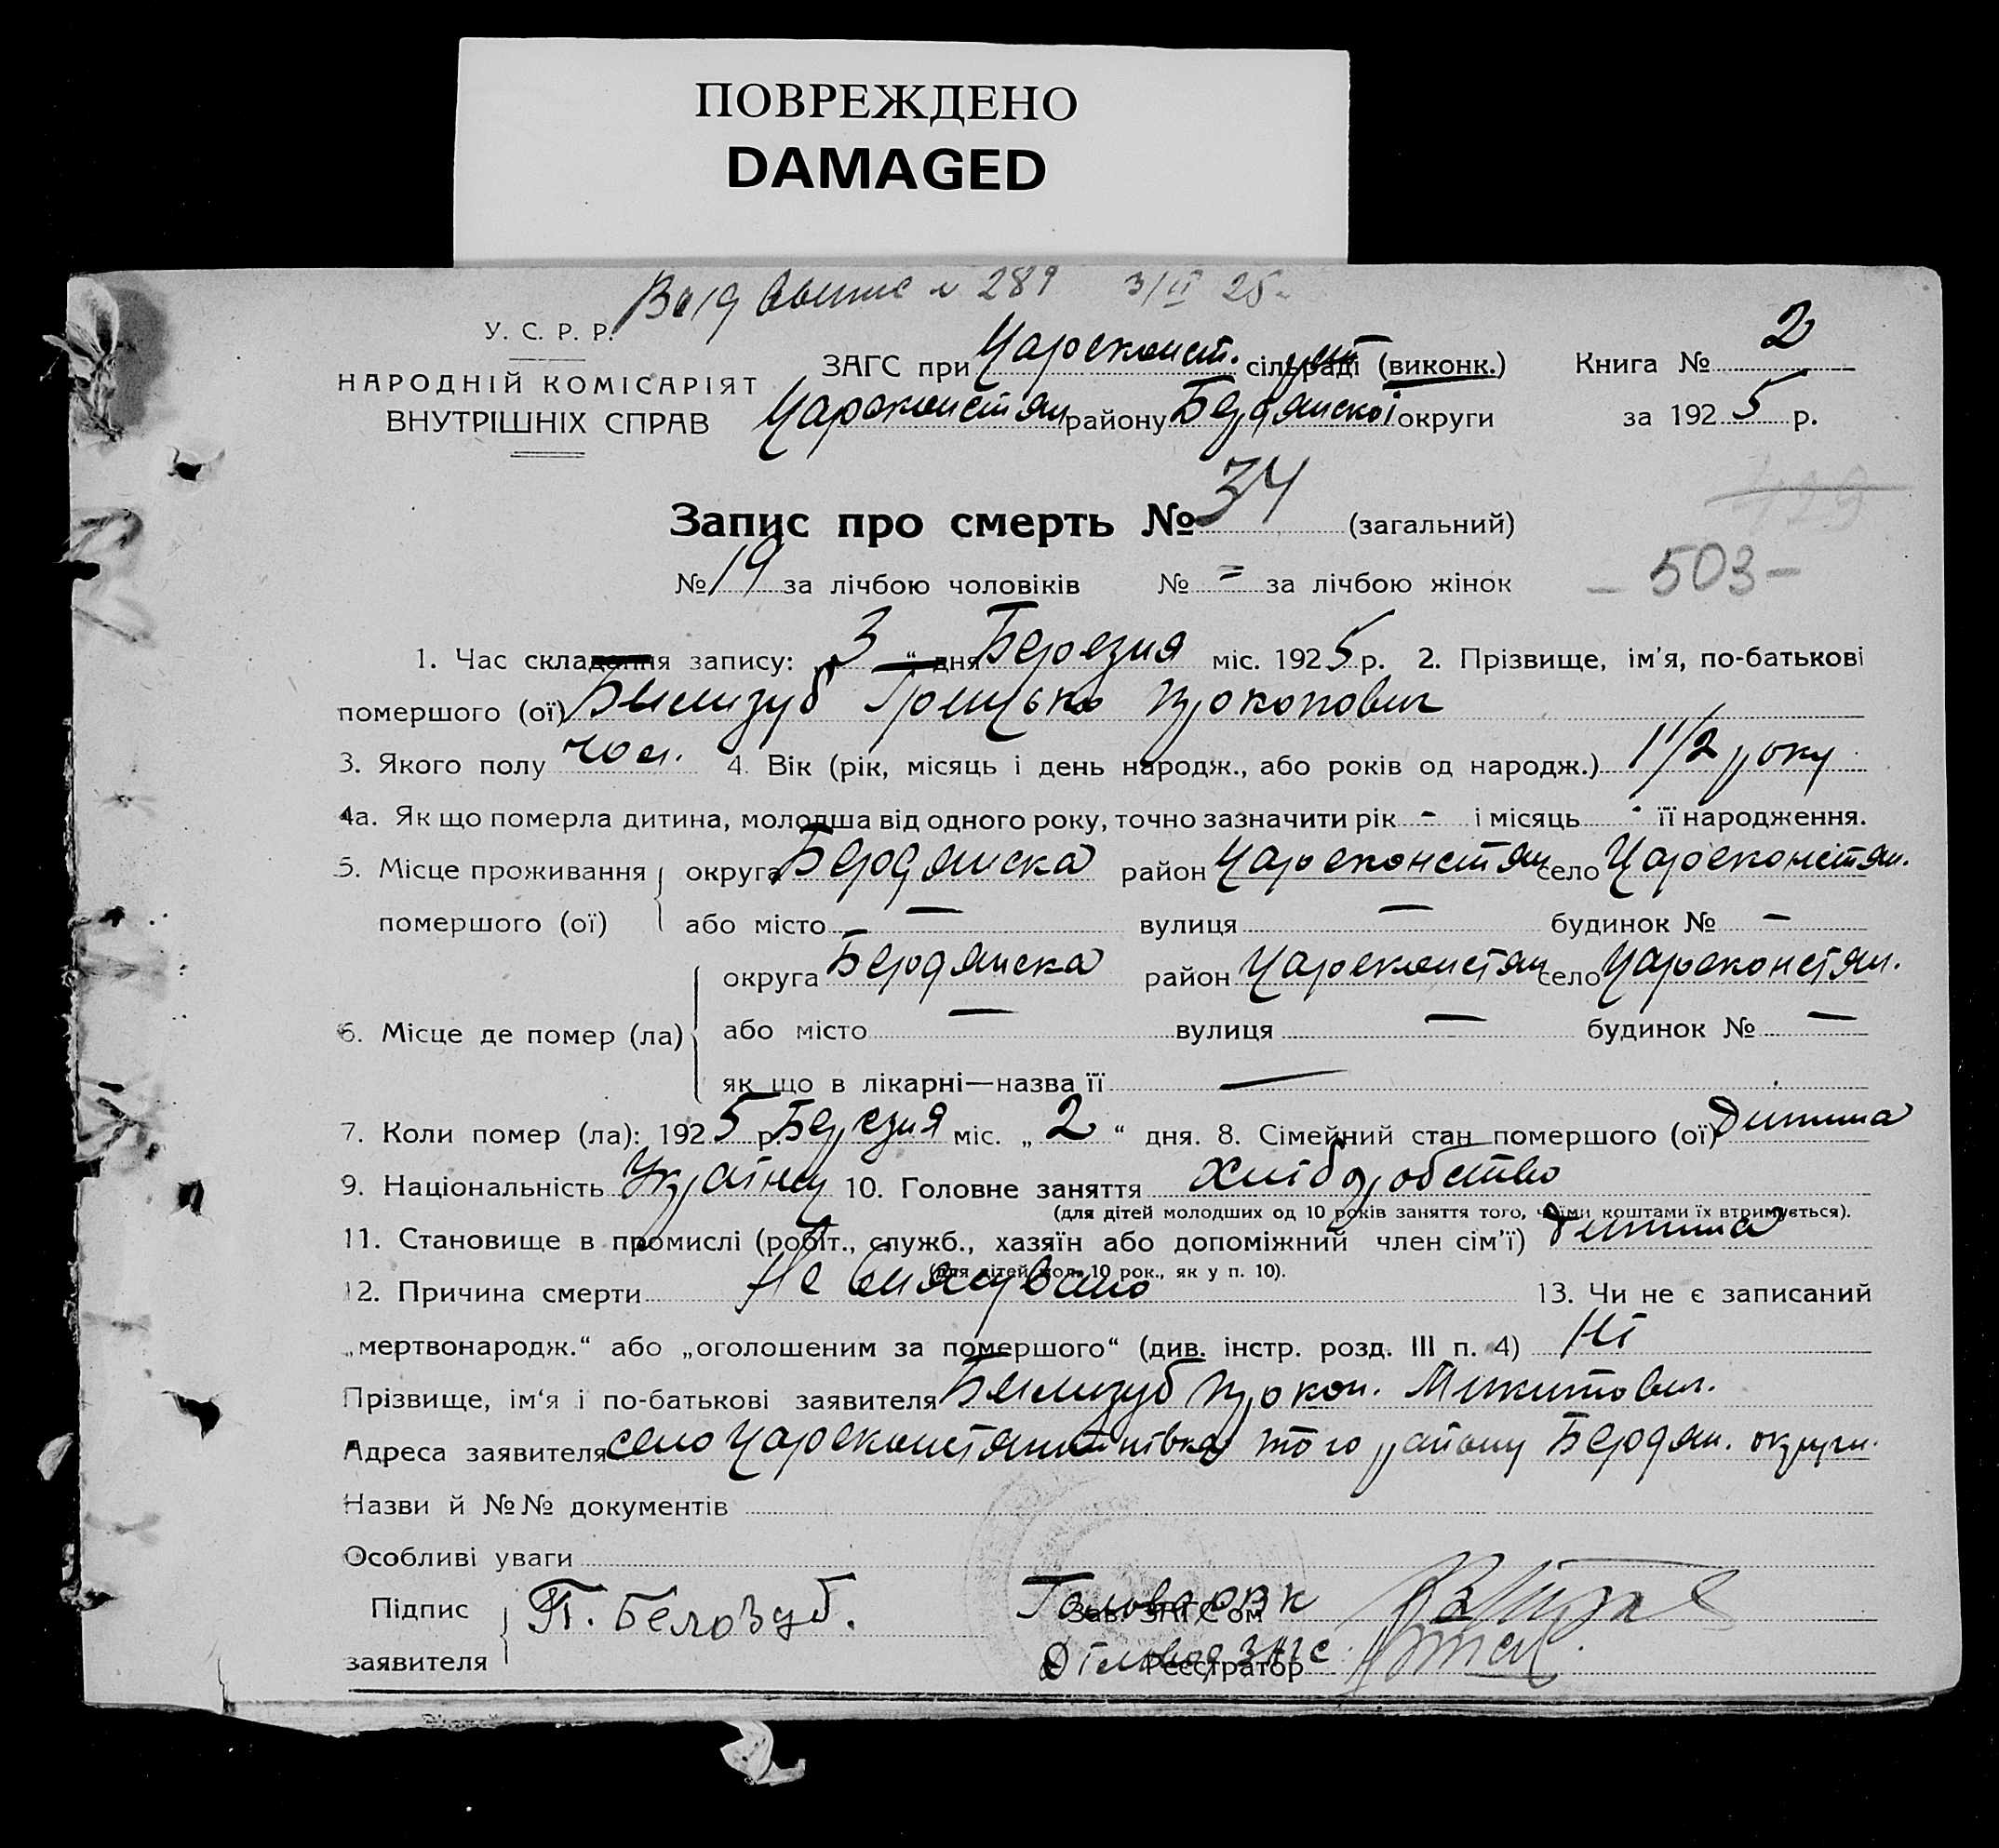 ПОВРЕЖДЕНО
DAMAGED
№ 289 3/II 25
У. С. Р. Р.
НАРОДНІЙ КОМІСАРІЯТ
ВНУТРІШНІХ СПРАВ
ЗАГС при Цареконст. сільраді (виконк.) Книга № 2
Цареконстян району Бердянскоі округи за 1925 р.
Запис про смерть № 34 (загальний)
№ 19 за лічбою чоловіків № = за лічбою жінок
— 503 —
1. Час складення запису: 3 " дня Березня міс. 1925 р. 2. Прізвище, ім'я, по-батькові
помершого (ої) Билизуб Грицько Прокопович
3. Якого полу чол. 4. Вік (рік, місяць і день народж., або років од народж.) 1 1/2 року
4а. Як що померла дитина, молодша від одного року, точно зазначити рік - і місяць - її народження.
5. Місце проживання округа Бердянска район Цареконстян село Цареконстян.
помершого (ої) або місто — вулиця — будинок № —
округа Бердянска район Цареконстян село Цареконстян.
6. Місце де помер (ла) або місто — вулиця — будинок № —
як що в лікарні—назва її —
7. Коли помер (ла): 1925 р. Березня міс. „ 2 " дня. 8. Сімейний стан помершого (ої) Дитина
9. Національність Україн 10. Головне заняття Хліборобство
(для дітей молодших од 10 років заняття того, чиїми коштами їх втримується).
11. Становище в промислі (робіт., служб., хазяїн або допоміжний член сім'ї) Дитина
(для дітей мол. 10 рок., як у п. 10).
12. Причина смерти Не виясувано 13. Чи не є записаний
„мертвонародж." або „оголошеним за помершого" (див. інстр. розд. III п. 4) Ні
Прізвище, ім'я і по-батькові заявителя Билизуб Прокоп. Микитович.
Адреса заявителя село Цареконстянтинівка того району Бердян. округи.
Назви й №№ документів
Особливі уваги
Підпис заявителя П. Белозуб. Голова РВК
Зав. ЗАГС'ом
Діловод ЗАГС
Реєстратор